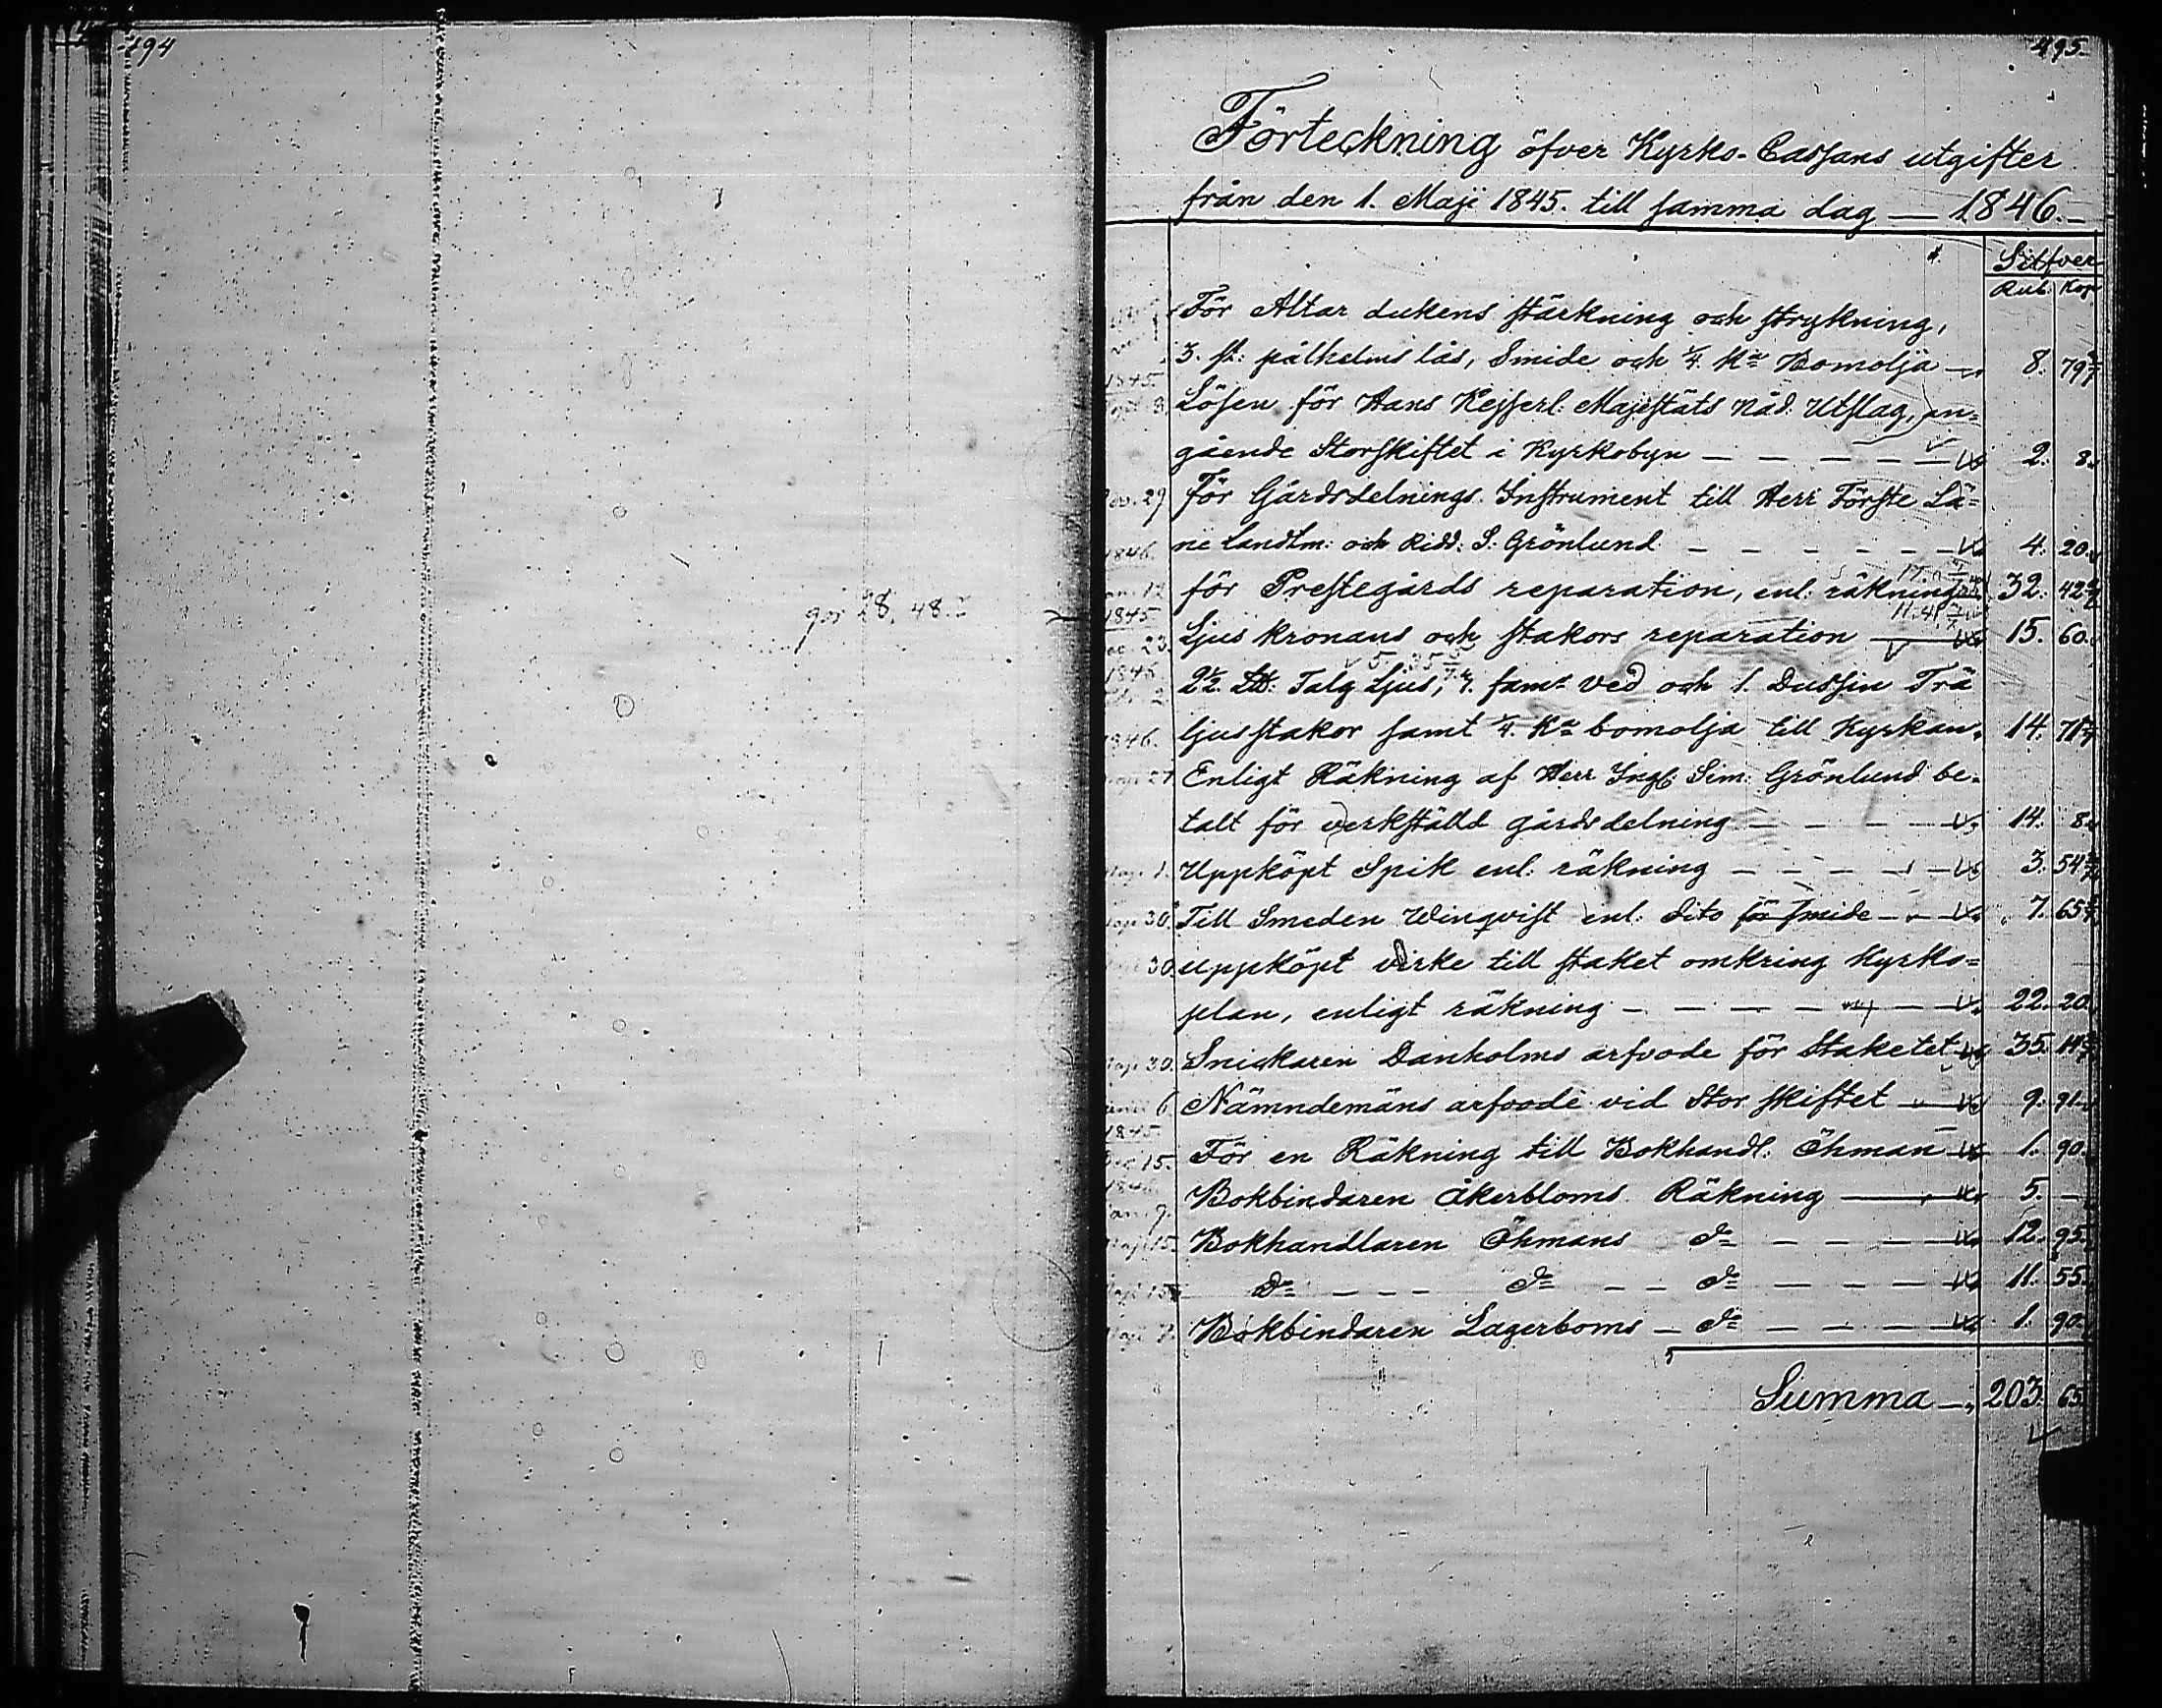 494
gör 28. 48.
495.
Förteckning öfver Kyrko-Cassans utgifter
från den 1. Maji 1845. till samma dag — 1846.
Silfver
Rub. Kop
För Altar dukens stärkning och strykning,
3. st: pålhelms lås, Smide och 1/4. Kna Bomolja — 8. 79 3/7
1845.
3. Lösen för Hans Kejserl: Majestäts Nåd. Utslag, an=
gående Storskiftet i Kyrkobyn — — — — — 2. 8.
29 För Gårdsdelnings Instrument till Herr Förste Lä=
1846. ne Landtm: och Ridd: S: Grönlund — — — — — 4. 20.
12 för Prestegårds reparation, enl: räkningar 32. 42
1845
11.41
23. Ljus kronans och stakors reparation — 15. 60.
1846
5. 35
2 1/2. L℔: Talg Ljus, 4. famr ved och 1. Dussin Trä
1846. ljusstakor samt 1/4. Kna bomolja till Kyrkan. 14. 71
Enligt Räkning af Herr Ingf: Sim: Grönlund be=
talt för verkställd gårdsdelning — — — — 14. 8.
1. Uppköpt Spik enl: räkning — — — — 3. 54
30. Till Smeden Winqvist enl: dito för smide — 7. 65
30 uppköpt virke till staket omkring Kyrko=
plan, enligt räkning — — — — — 22. 20.
30. Snickaren Danholms arfvode för Staketet 35. 14
6 Nämndemäns arfvode vid Stor skiftet — 9. 91
1845
15. För en Räkning till Bokhandl: Öhman — 1. 90.
1846
9. Bokbindaren Åkerbloms Räkning — 5. —
15. Bokhandlaren Öhmans do — — — — 12. 95.
15 Do — — — do — — do — — — — 11. 55.
7. Bokbindaren Lagerboms — do — — — — 1. 90.
Summa — 203. 65.